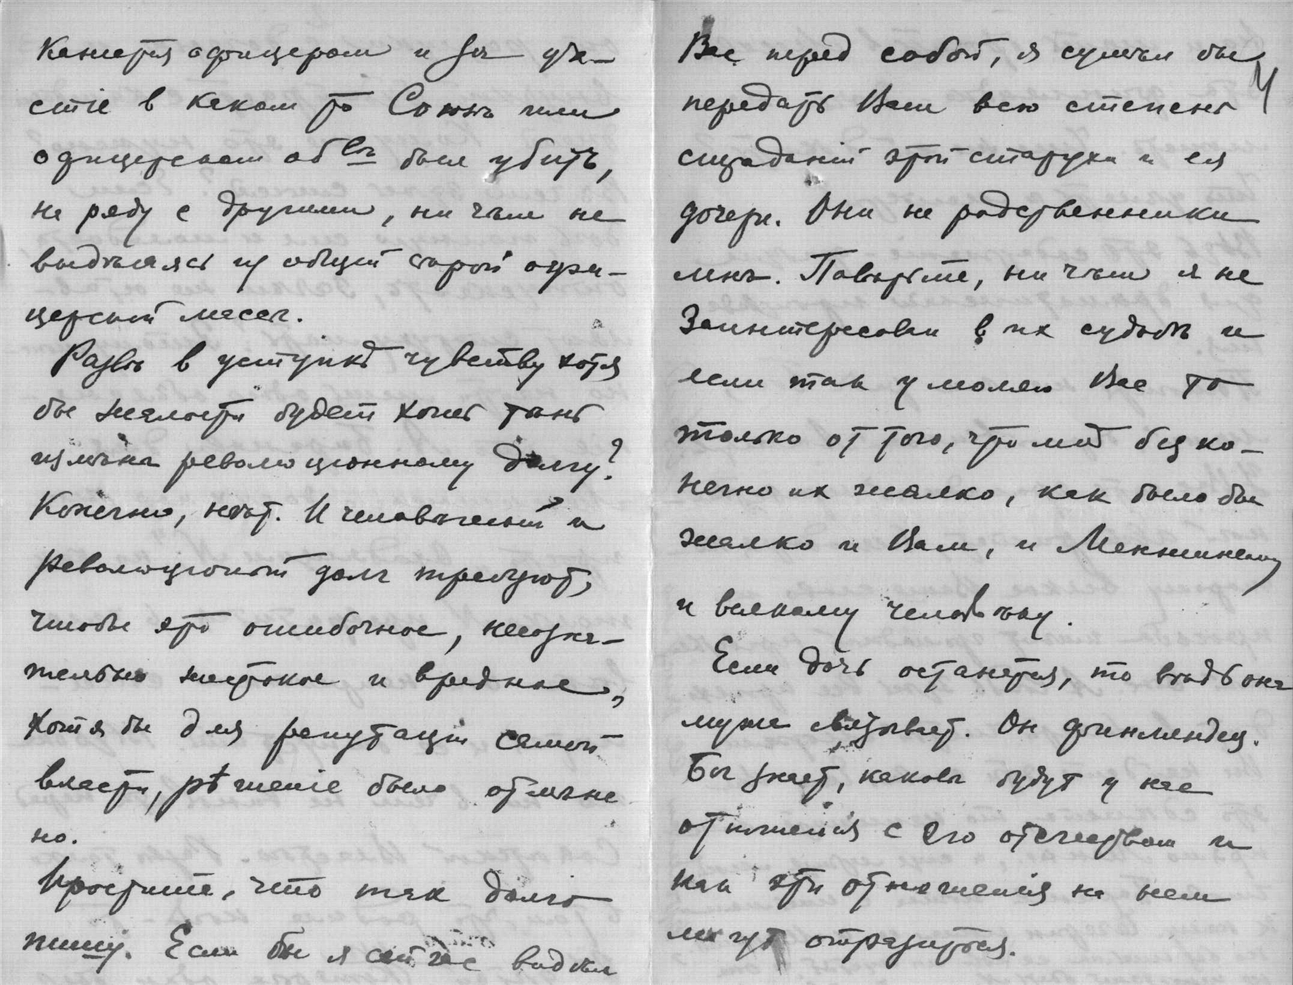 кажется офицером и за уча-
стіе в каком то Союзѣ или
офицерском обвѣ был убитъ,
на ряду с другими, ни чѣм не
выдѣляясь из общей старой офи-
церской массы.
Развѣ в уступкѣ чувству хотя
бы жалости будет хоть тѣнь
измѣны революціонному долгу?
Конечно, нѣт. И человѣческій и
революціонный долг требуют,
чтобы это ошибочное, несозна-
тельно жестокое и вредное,
хотя бы для репутаціи самой
власти, рѣшеніе было отмѣне
но.
Простите, что так долго
пишу. Если бы я сейчас видѣл
Вас перед собой, я сумѣл бы
передать Вам всю степень
страданій этой старухи и ея
дочери. Они не родственники
мнѣ. Повѣрьте, ни чѣм я не
заинтересован в их судьбѣ и
если так умоляю Вас то
только от того, что мнѣ без ко-
нечно их жалко, как было бы
жалко и Вам, и Менжинскому
и всякому человѣку.
Если дочь останется, то вѣдь она
мужа связывает. Он финляндец.
Бог знает, каковы будут у нас
отношенія с его отечеством и
как эти отношенія на нем
могут отразиться.